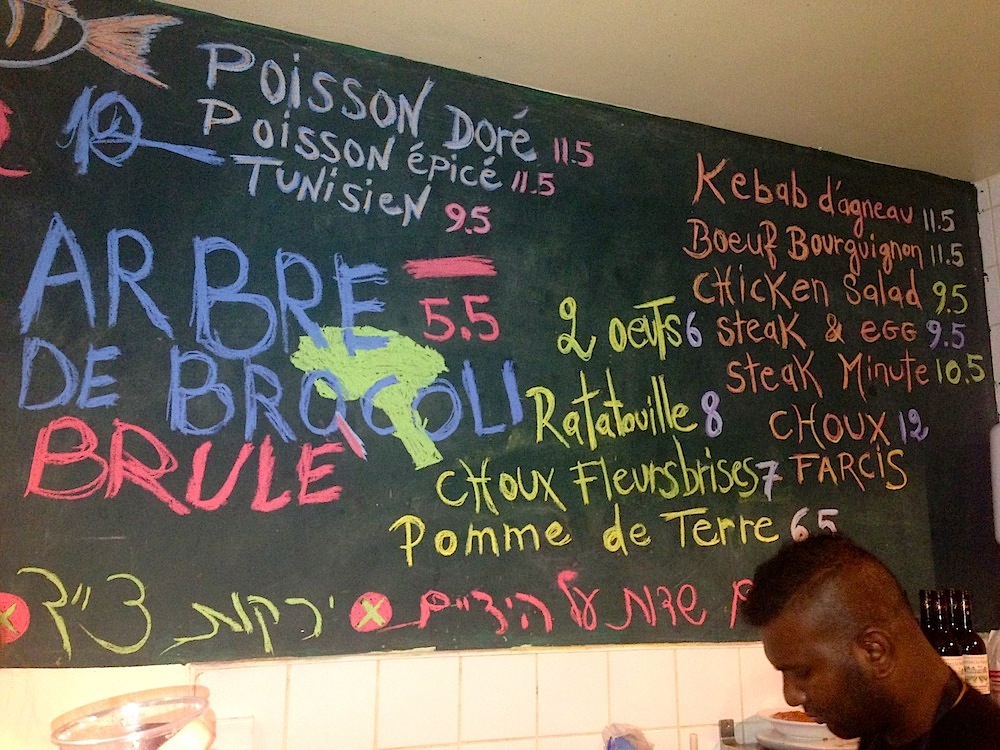 10
POISSON Doré 11.5
Poisson épicé 11.5
TUNISIEN 9.5
ARBRE 5.5
DE BROCOLI
BRULÉ
Kebab d'agneau 11.5
Boeuf Bourguignon 11.5
CHicKen Salad 9.5
2 oeufs 6
steak & EGG 9.5
steak Minute 10.5
Ratatouille 8
CHOUX 12
FARCIS
CHOUX Fleursbrises 7
Pomme de Terre 6.5
x ירקות x
שדות על הידיים